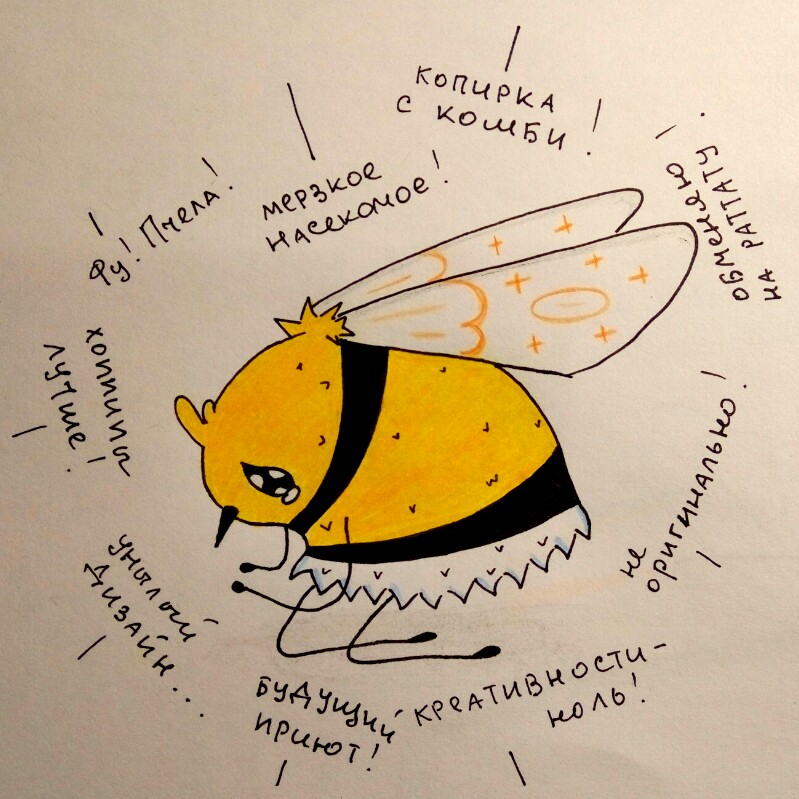 КОПИРКА
С КОМБИ!
МЕРЗКОЕ
НАСЕКОМОЕ!
ФУ! ПЧЕЛА!
ОБМЕНЕНО
НА РАТТАТУ
ХОППИПЫ
ЛУЧШЕ!
НЕ
ОРИГИНАЛЬНО!
УНЫЛЫЙ
ДИЗАЙН...
БУДУЩИЙ
ПРИЮТ!
КРЕАТИВНОСТИ-
НОЛЬ!